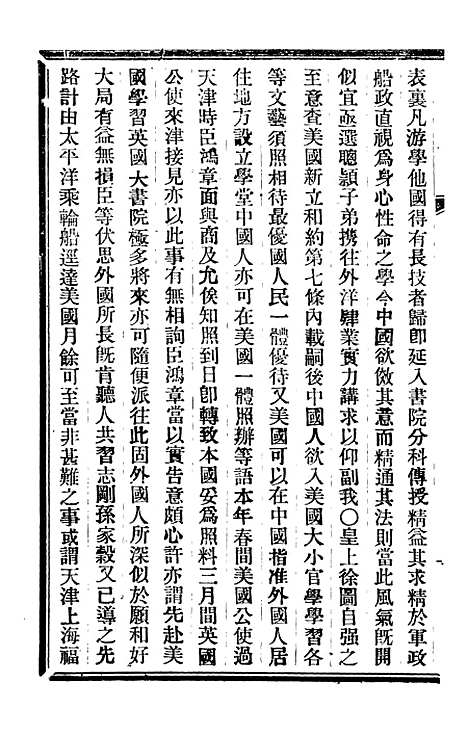 表裏凡游學他國得有長技者歸卽延入書院分科傳授精益其求精於軍政
船政直視爲身心性命之學今中國欲倣其意而精通其法則當此風氣旣開
似宜亟選聰頴子弟携往外洋肄業實力講求以仰副我〇皇上徐圖自强之
至意查美國新立和約第七條內載嗣後中國人欲入美國大小官學學習各
等文藝須照相待最優國人民一體優待又美國可以在中國指准外國人居
住地方設立學堂中國人亦可在美國一體照辦等語本年春間美國公使過
天津時臣鴻章面與商及允俟知照到日卽轉致本國妥爲照料三月間英國
公使來津接見亦以此事有無相詢臣鴻章當以實告意頗心許亦謂先赴美
國學習英國大書院極多將來亦可隨便派往此固外國人所深似於願和好
大局有益無損臣等伏思外國所長旣肯聽人共習志剛孫家穀又已導之先
路計由太平洋乘輪船逕達美國月餘可至當非甚難之事或謂天津上海福